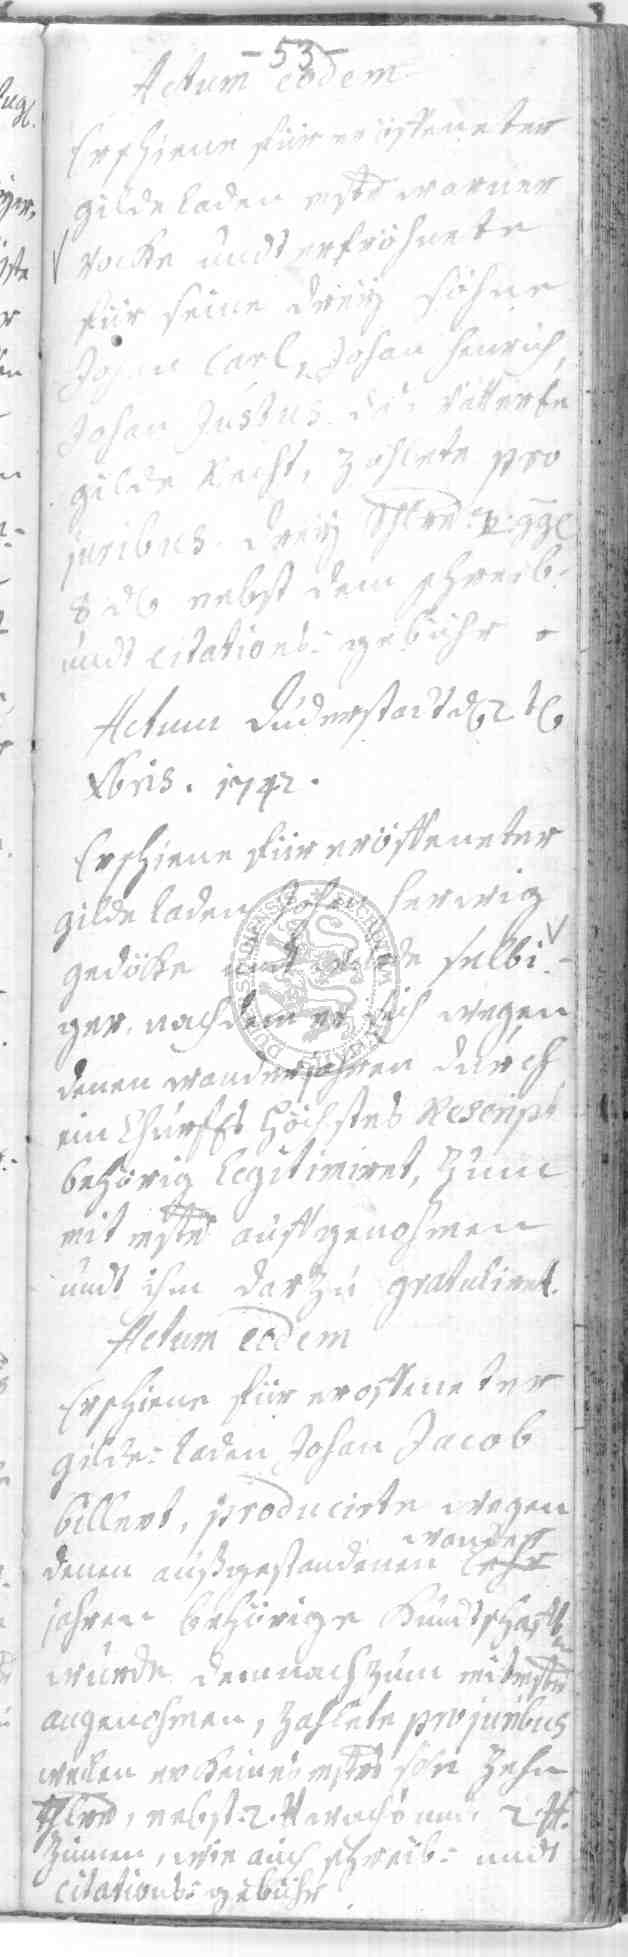 -53-
Actum eodem
Erschiene für eröffeneter
gilde laden mstr warner
vocke undt erfröhnete
für seine dreÿ söhne
Johan Carl, Johan Henrich,
Johan Justus die vätterliche
gilde Recht, zahlete pro
juribus dreÿ thlr
8 nebst dem schreib-
undt citations-gebühr
Actum Duderstadt d 2 t
Xbris. 1742.
Erschiene für eröffeneter
gilde laden Johan Herwig
gedöcke undt wurde selbi-
ger, nachdem er sich wegen
denen wanderjahren durch
ein Churfstl höchstes Rescript
behörig legitimiret, zum
mit mstr auffgenohmen
undt ihm darzu gratuliret.
Actum eodem
Erschiene für eroffeneter
gilde-laden Johan Jacob
billert, producirte wegen
wander
denen außgestandenen lehr
jahren behörige Kundtschafft
wurde demnach zum mitmstr
angenohmen, zahlete pro juribus
weilen er keines mstrs sohn zehn
thlr, nebst 2 ℔ wachs und 2 ℔.
Zinnen, wie auch schreib- undt
citations-gebühr